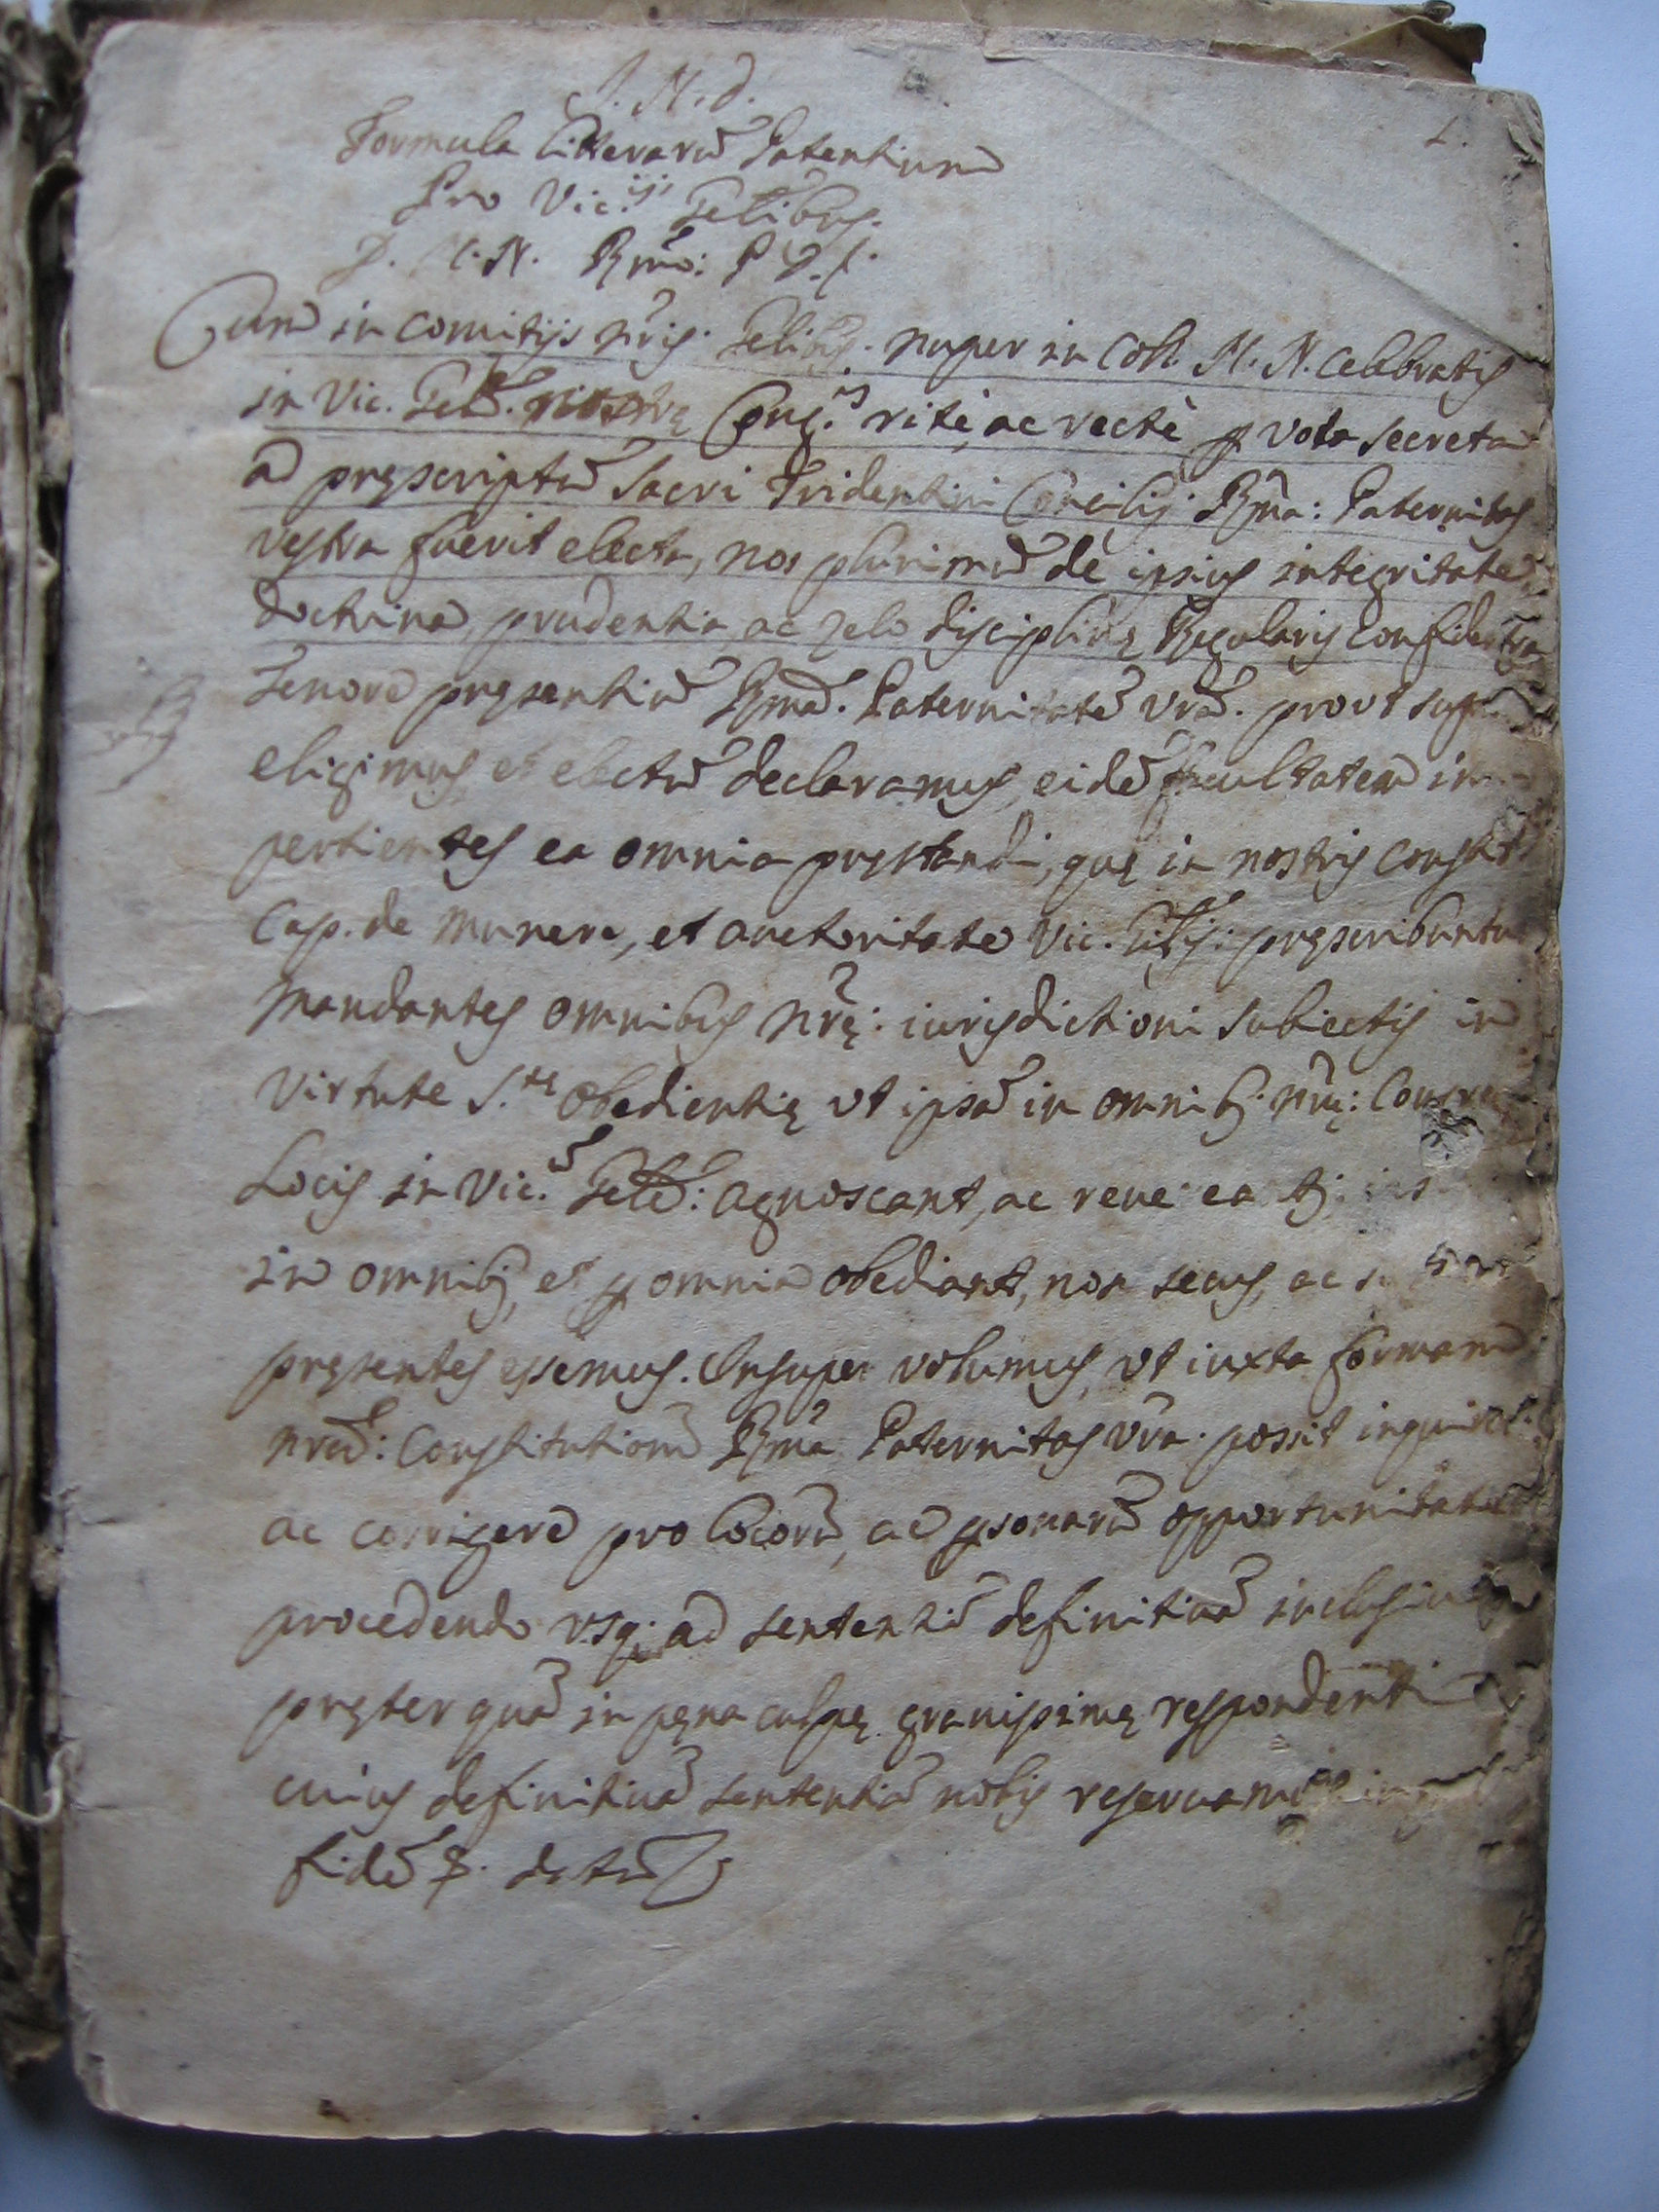 J. N. D.
1.
Formula litterarũ Patentium
Pro Vic.ijs Gẽlibus.
D. N. N. Rmõ: P. D. f.
Cum in comitijs nr̃is. Gẽlibus. nuper in Coll. N. N. celebratis
in Vic. Gẽlẽ. nostrę Cong.is ritè, ac rectè ꝑ vota secreta
ad pręscriptũ Sacri Tridentini Concilij Rmã: Paternitas
vestra fuerit electa, nos plurimũ de ipsius integritate
doctrina, prudentia, ac zelo disciplinę Regularis confidentes
Tenore pręsentiũ Rmã. Paternitatẽ vrã. prout supra
eligimus et electũ declaramus, eidẽ facultatem im
pertientes ea omnia pręstandi, quę in nostris Constit.
Cap. de munere, et auctoritate Vic. Glĩs: pręscribuntur
Mandantes omnibus nr̃ę: iurisdictioni subiectis in
virtute S.tę Obedientię ut ipsũ in omnibq nr̃ę: Congreg
Locis in Vic.ũ Gẽlẽ: agnoscant, ac reue
in omnibq, et ꝑ omnia obediant, non secus, ac si
pręsentes essemus. Insuper volumus, ut iuxta formam
nrarũ: Constitutionũ Rmã Paternitas vrã. possit inquirere
ac corrigere pro locorũ, ac ꝑsonarũ opportunitate
procedendo usq; ad sententiã definitiuã inclusiue
pręterquã in pęna culpę grauissimę respondenti
cuius definitiuã sententiã nobis reseruamus in
fidẽ &. datũ